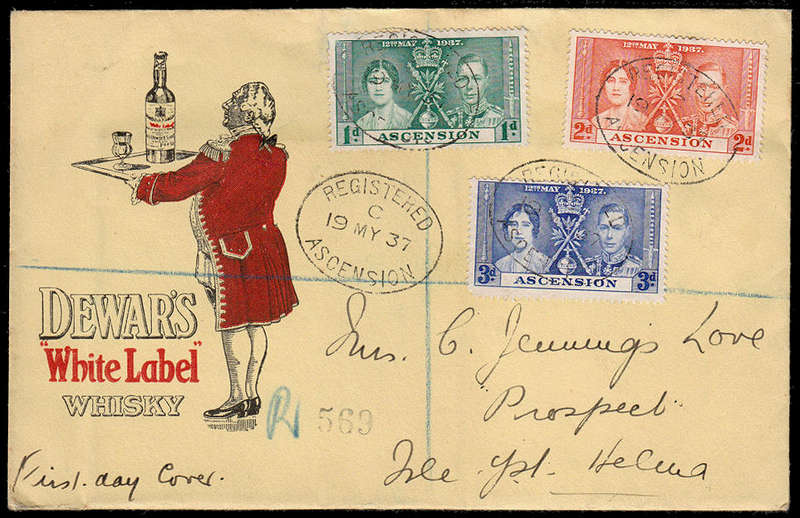 12TH MAY 1937.
1d ASCENSION 1d
12TH MAY 1937.
2d ASCENSION 2d
12TH MAY 1937.
3d ASCENSION 3d
REGISTERED
C
19 MY 37
ASCENSION
White Label
DEWAR'S
"White Label"
WHISKY
R 569
Mrs. C. Jennings Love
Prospect
Isle of St. Helena
First. day Cover.